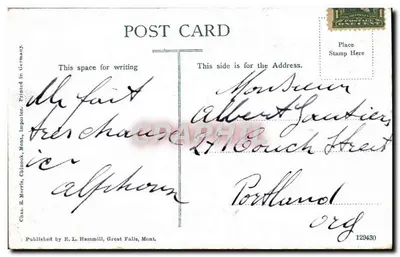 POST CARD
This space for writing
This side is for the Address.
Place
Stamp Here
Chas. E. Morris, Chinook, Mont. Importer. Printed in Germany.
fait
tres chaux
ici
Alphonse
Monsieur
Albert Gautier
271 Couch Street
Portland
Org
Published by E. L. Hammill, Great Falls, Mont.
129430